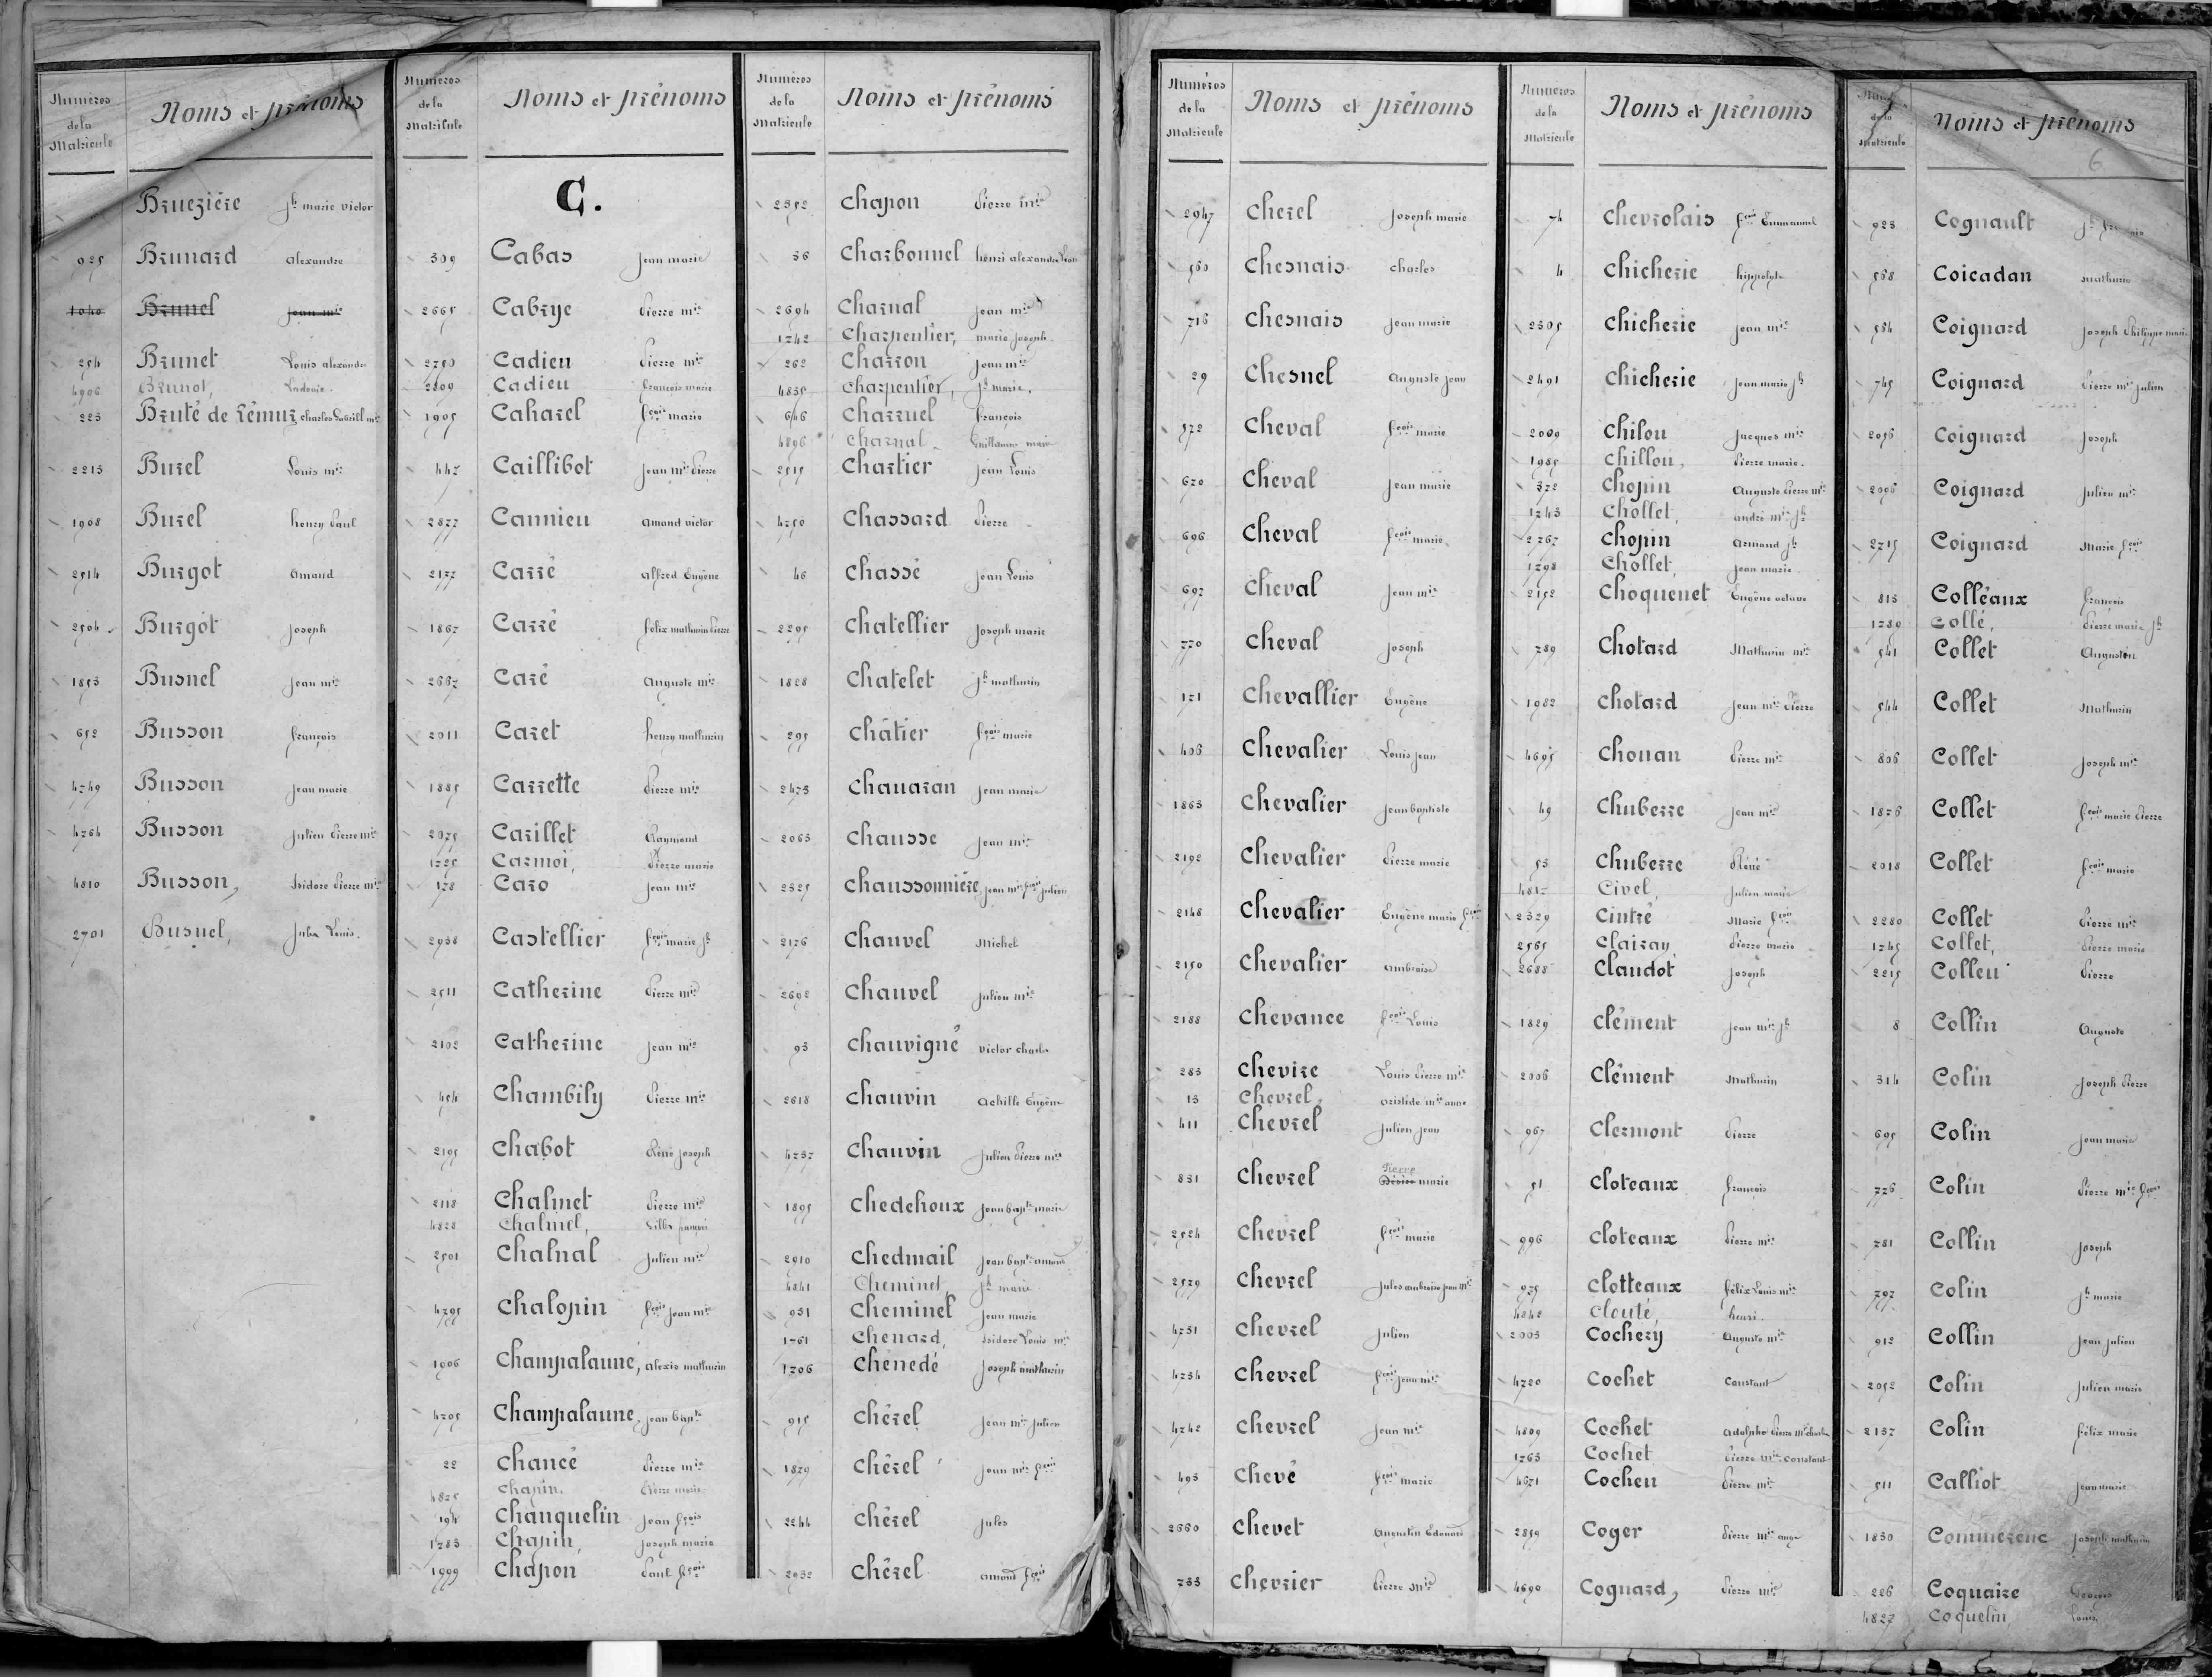 Numéros de la Matricule
Noms et prénoms
Bruezière Jh marie victor
925 Brunard alexandre
1040 Brunel Jean mie
254 Brunet Louis alexandre
4906 Brunot, Ludovic.
223 Bruté de Rémur charles Gabriel mie
2213 Burel Louis mie
1908 Burel henry Paul
2514 Burgot amand
2504 Burgot Joseph
1853 Busnel Jean mie
652 Busson françois
4749 Busson Jean marie
4764 Busson Julien Pierre mie
4810 Busson, Isidore Pierre mie
2701 Busnel, Jules Louis.
Numéros de la Matricule
Noms et prénoms
C.
309 Cabas Jean marie
2665 Cabrye Pierre mie
2750 Cadieu Pierre mie
2809 Cadieu françois marie
1905 Caharel fçois marie
447 Caillibot Jean mie Pierre
2877 Cannieu Amand victor
2177 Carré alfred Eugène
1867 Carré félix mathurin Pierre
2667 Caré Auguste mie
2011 Caret henry mathurin
1885 Carrette Pierre mie
2075 Carillet Raymond
1725 Carmoi, Pierre marie
178 Caro Jean mie
2938 Castellier fçois marie Jh
2511 Catherine Pierre mie
2102 Catherine Jean mie
454 Chambily Pierre mie
2195 Chabot Réné Joseph
2118 Chalmet Pierre mie
4828 Chalmel, Gilles françois
2501 Chalnal Julien mie
4795 Chalopin fçois Jean mie
1906 Champalaune, alexis mathurin
4705 Champalaune, Jean Bapte
22 Chancé Pierre mie
4825 Chapin. Pierre marie.
194 Chanquelin Jean fçois
1783 Chapin, Joseph marie
1999 Chapon Paul fçois
Numéros de la Matricule
Noms et prénoms
2352 Chapon Pierre mie
36 Charbonnel henri alexandre Léon
2694 Charnal Jean mie
1742 Charpentier, marie Joseph.
262 Charron Jean mie
4835 Charpentier, Jh marie.
646 Charruel françois
4896 Charnal Guillaume marie
2515 Chartier Jean Louis
4750 Chassard Pierre
46 Chassé Jean Louis
2295 Chatellier Joseph marie
1828 Chatelet Jh mathurin
295 Châtier fçois marie
2473 Chauaran Jean marie
2063 Chausse Jean mie
2325 Chaussonnière, Jean mie fçois Julien
2176 Chauvel Michel
2692 Chauvel Julien mie
93 Chauvigné victor charles
2618 Chauvin Achille Eugène
4737 Chauvin Julien Pierre mie
1895 Chedehoux Jean Bapte marie
2910 Chedmail Jean Bapte amand
4841 Cheminel, Jh marie
931 Cheminel Jean marie
1761 Chenard, Isidore Louis mie
1706 Chenedé Joseph mathurin
915 Chérel Jean mie Julien
1879 Chérel Jean mie fçois
2244 Chérel Jules
2032 Chérel amand fçois
Numéros de la Matricule
Noms et prénoms
2947 Cherel Joseph marie
560 Chesnais charles
716 Chesnais Jean marie
29 Chesnel Auguste Jean
572 Cheval fçois marie
620 Cheval Jean marie
696 Cheval fçois marie
697 Cheval Jean mie
770 Cheval Joseph
171 Chevallier Eugène
406 Chevalier Louis Jean
1863 Chevalier Jean Baptiste
2192 Chevalier Pierre marie
2148 Chevalier Eugène marie fçois
2150 Chevalier ambroise
2188 Chevance fçois Louis
283 Chevire Louis Pierre mie
13 Chevrel, aristide mie anne
411 Chevrel Julien Jean
831 Chevrel Pierre Désiré marie
2524 Chevrel fçois marie
2579 Chevrel Jules ambroise Jean mie
4731 Chevrel Julien
4734 Chevrel fçois Jean mie
4742 Chevrel Jean mie
493 Chevé fçois marie
2660 Chevet Augustin Edouard
733 Chevrier Pierre mie
Numéros de la Matricule
Noms et prénoms
74 Chevrolais fçois Emmanuel
4 Chicherie hippolyte
2305 Chicherie Jean mie
2491 Chicherie Jean marie Jh
2009 Chilou Jacques mie
1985 Chillou, Pierre marie.
372 Chopin Auguste Pierre mie
1743 Chollet, andré mie Jh
2267 Chopin Armand Jh
1798 Chollet, Jean marie
2152 Choquenet Eugène octave
789 Chotard Mathurin mie
1982 Chotard Jean mie Pierre
4695 Chouan Pierre mie
49 Chuberre Jean mie
53 Chuberre Réné
4817 Civel, Julien marie
2329 Cintré Marie fçois
2565 Clairay, Pierre marie
2688 Claudot Joseph
1829 Clément Jean mie Jh
2006 Clément Mathurin
967 Clermont Pierre
51 Cloteaux françois
996 Cloteaux Pierre mie
975 Clotteaux félix Louis mie
4842 Clouté, henri.
2003 Cochery Auguste mie
4720 Cochet Constant
4809 Cochet Adolphe Pierre Mie charles
1763 Cochet Pierre mie constant
4671 Cocheu Pierre mie
2859 Coger Pierre mie ange
4690 Cognard, Pierre mie
Numéros de la Matricule
Noms et prénoms
6
923 Cognault
558 Coicadan mathurin
554 Coignard Joseph Philippe marie
745 Coignard Pierre mie Julien
2056 Coignard Joseph
2096 Coignard Julien mie
2715 Coignard Marie fçois
813 Colléaux françois
1789 Collé, Pierre marie Jh
541 Collet Augustin
544 Collet Mathurin
806 Collet Joseph mie
1876 Collet fçois marie Pierre
2018 Collet fçois marie
2280 Collet Pierre mie
1745 Collet, Pierre marie
2215 Colleu Pierre
8 Collin Auguste
314 Colin Joseph Pierre
695 Colin Jean marie
776 Colin Pierre mie fçois
781 Collin Joseph
797 Colin Jh marie
912 Collin Jean Julien
2052 Colin Julien marie
2137 Colin félix marie
511 Calliot Jean marie
1830 Commerenc Joseph mathurin
226 Coquaire
4827 Coquelin, Louis